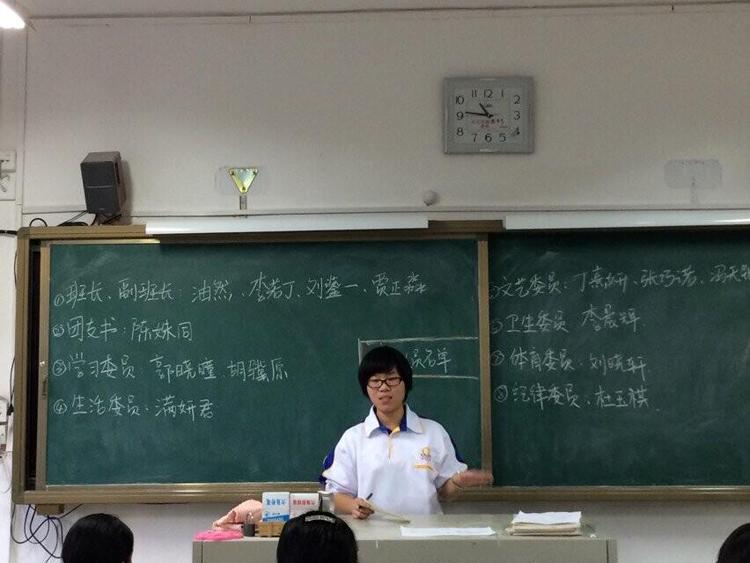 ①班长、副班长：油然、李若丁、刘鎏一、贾正淼
②团支书：陈姝同
③学习委员 郭晓曈、胡骥原
④生活委员：满妍君
员名单
文艺委员：丁熹妍、张巧诺、冯天
卫生委员 李晨辉
体育委员：刘晓轩
⑧纪律委员：杜玉祺
10 11 12 1 2
9 3
8 7 6 5 4